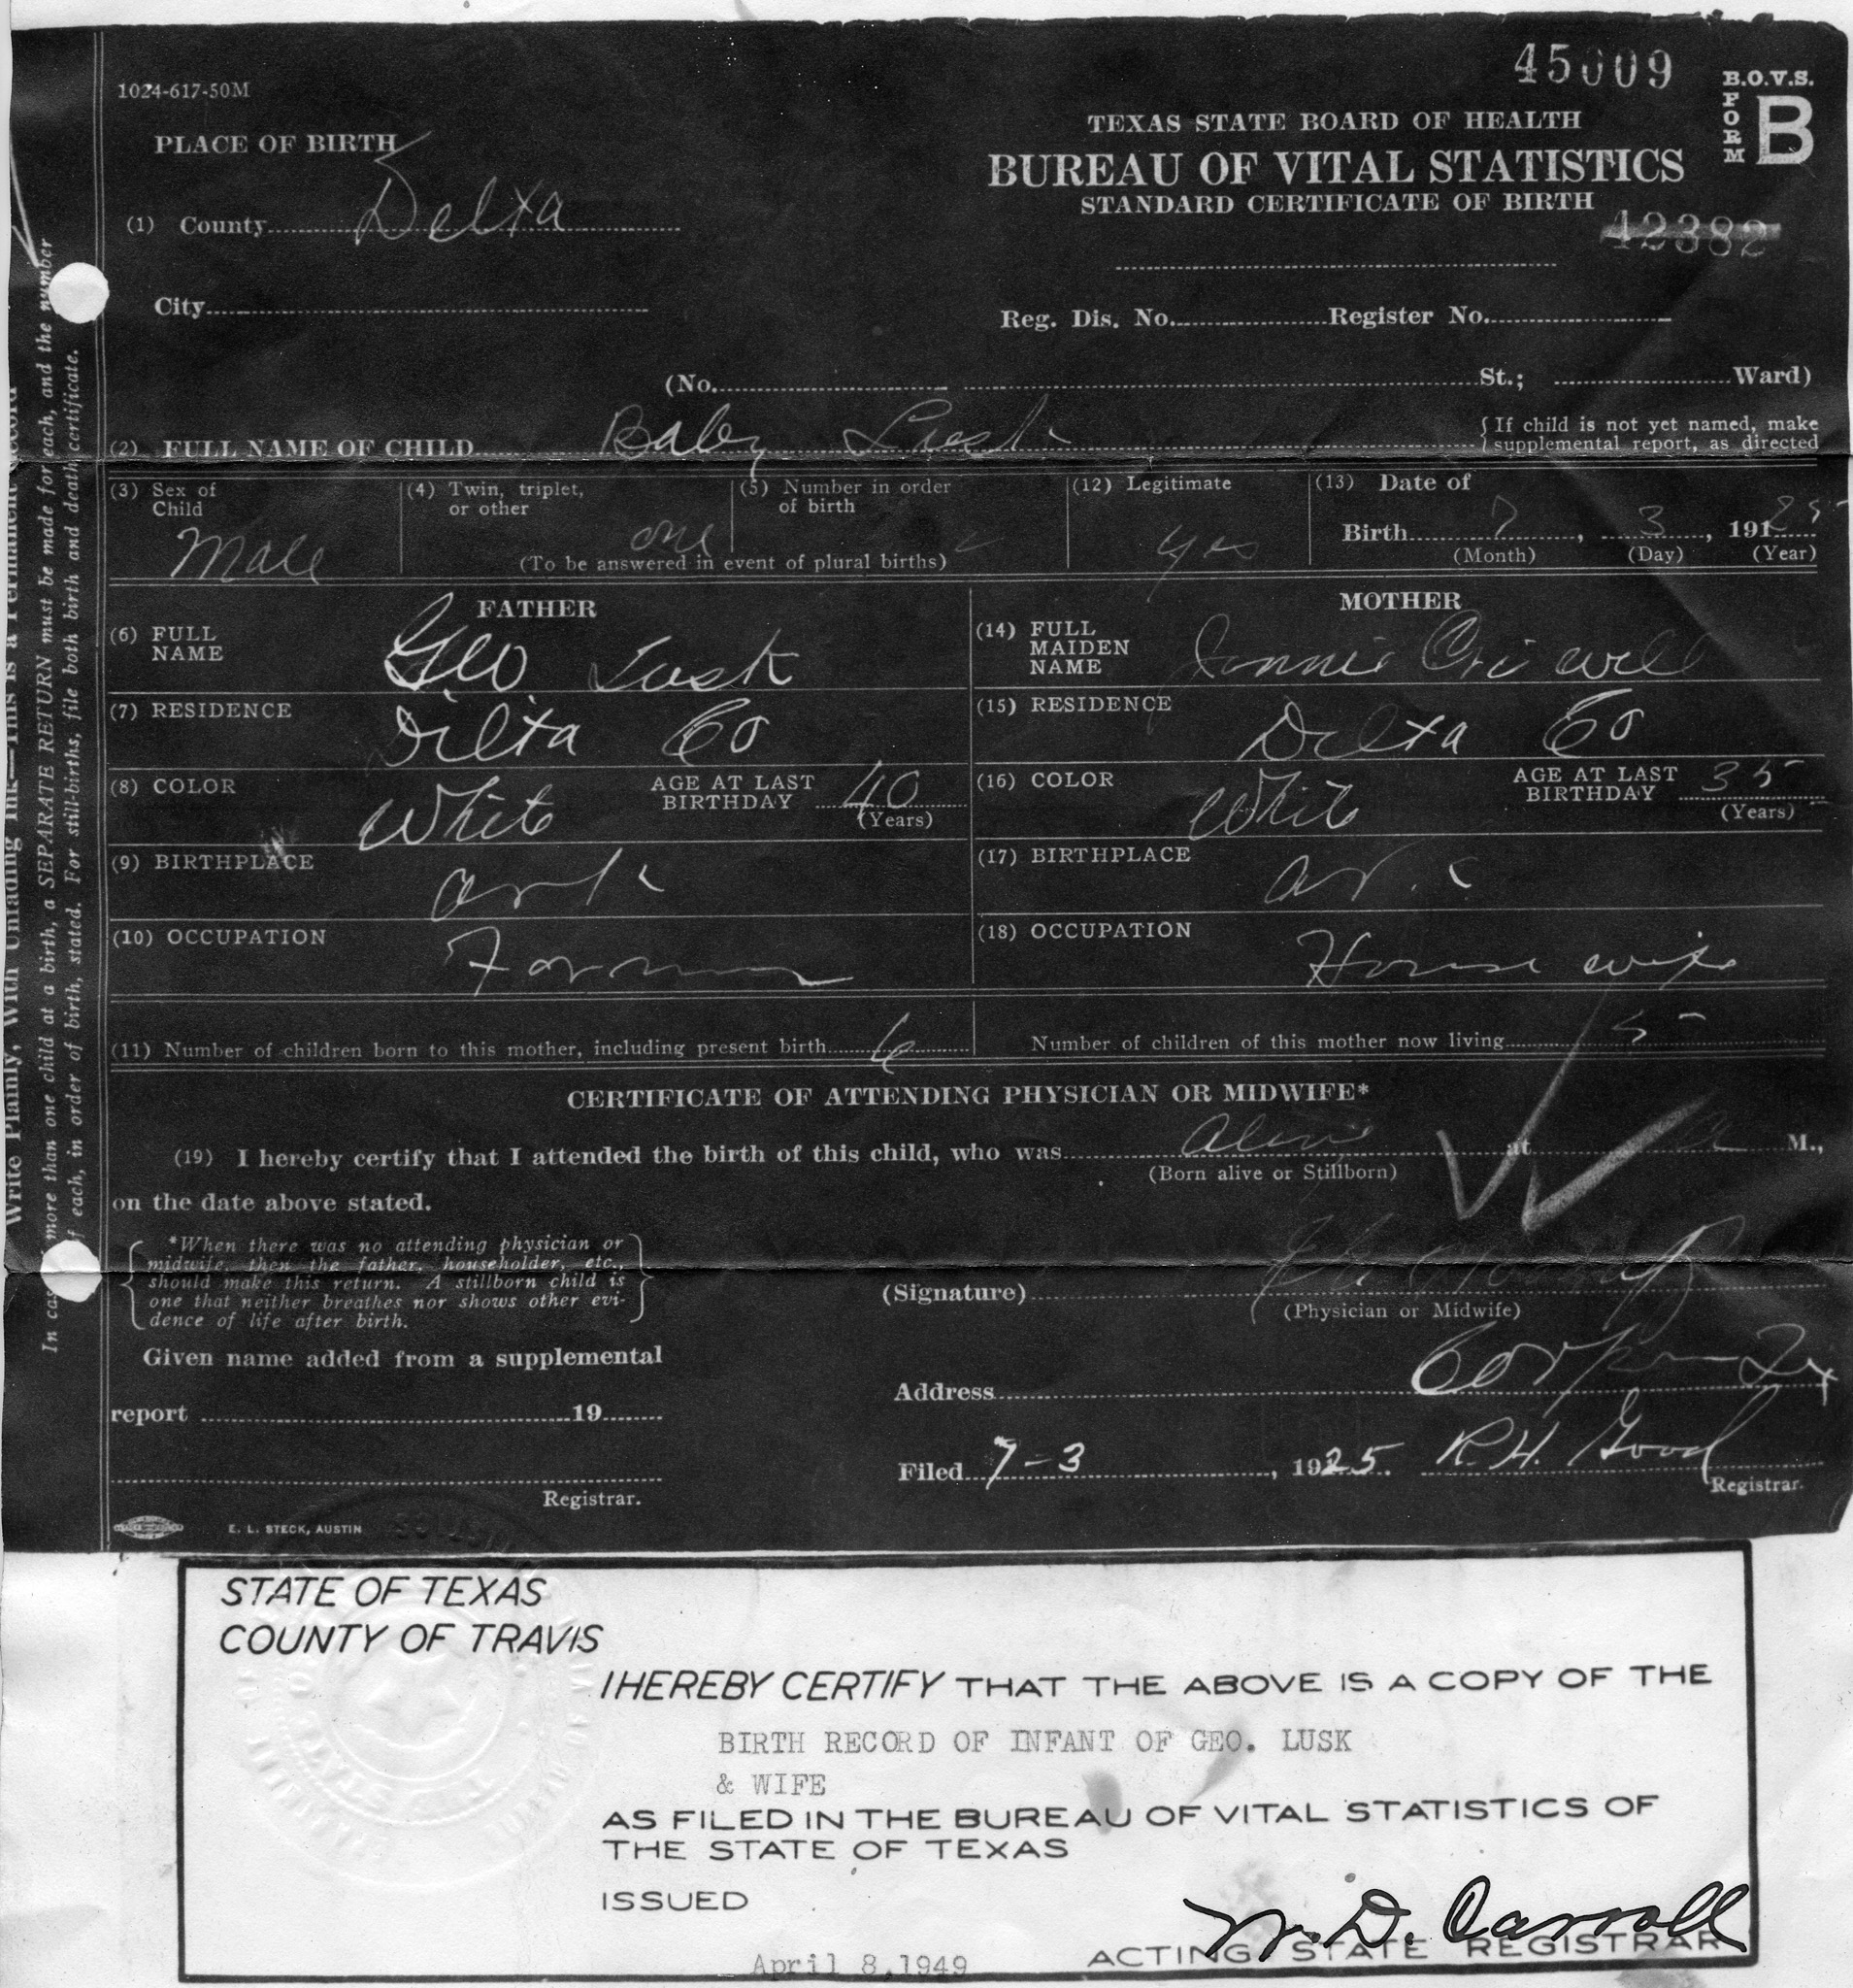 45009
B.O.V.S.
FORM
B
1024-617-50M
TEXAS STATE BOARD OF HEALTH
PLACE OF BIRTH
BUREAU OF VITAL STATISTICS
STANDARD CERTIFICATE OF BIRTH
42382
(1) County Delta
City
Reg. Dis. No. Register No.
(No. St.; Ward)
(2) FULL NAME OF CHILD Baby Lusk
{If child is not yet named, make
supplemental report, as directed
(3) Sex of Child Male
(4) Twin, triplet, or other one
(5) Number in order of birth
(To be answered in event of plural births)
(12) Legitimate yes
(13) Date of
Birth 7, 3, 191 25
(Month) (Day) (Year)
FATHER
(6) FULL NAME Geo Lusk
(7) RESIDENCE Delta Co
(8) COLOR White AGE AT LAST BIRTHDAY 40 (Years)
(9) BIRTHPLACE Ark
(10) OCCUPATION Farmer
MOTHER
(14) FULL MAIDEN NAME
(15) RESIDENCE Delta Co
(16) COLOR White AGE AT LAST BIRTHDAY 35 (Years)
(17) BIRTHPLACE Ark
(18) OCCUPATION House wife
(11) Number of children born to this mother, including present birth 6 Number of children of this mother now living 5
CERTIFICATE OF ATTENDING PHYSICIAN OR MIDWIFE*
(19) I hereby certify that I attended the birth of this child, who was Alive at a M.,
(Born alive or Stillborn)
on the date above stated.
*When there was no attending physician or
midwife, then the father, householder, etc.,
should make this return. A stillborn child is
one that neither breathes nor shows other evi-
dence of life after birth.
(Signature)
(Physician or Midwife)
Given name added from a supplemental
report 19
Registrar.
Address Tex
Filed 7-3, 1925. R.H. Good
Registrar.
E. L. STECK, AUSTIN
Write Plainly, With Unfading Ink—This is a Permanent Record
In case of more than one child at a birth, a SEPARATE RETURN must be made for each, and the number
of each, in order of birth, stated. For still-births, file both birth and death certificate.
STATE OF TEXAS
COUNTY OF TRAVIS
I HEREBY CERTIFY THAT THE ABOVE IS A COPY OF THE
BIRTH RECORD OF INFANT OF GEO. LUSK
& WIFE
AS FILED IN THE BUREAU OF VITAL STATISTICS OF
THE STATE OF TEXAS
ISSUED
W. D. Carroll
April 8,1949 ACTING STATE REGISTRAR